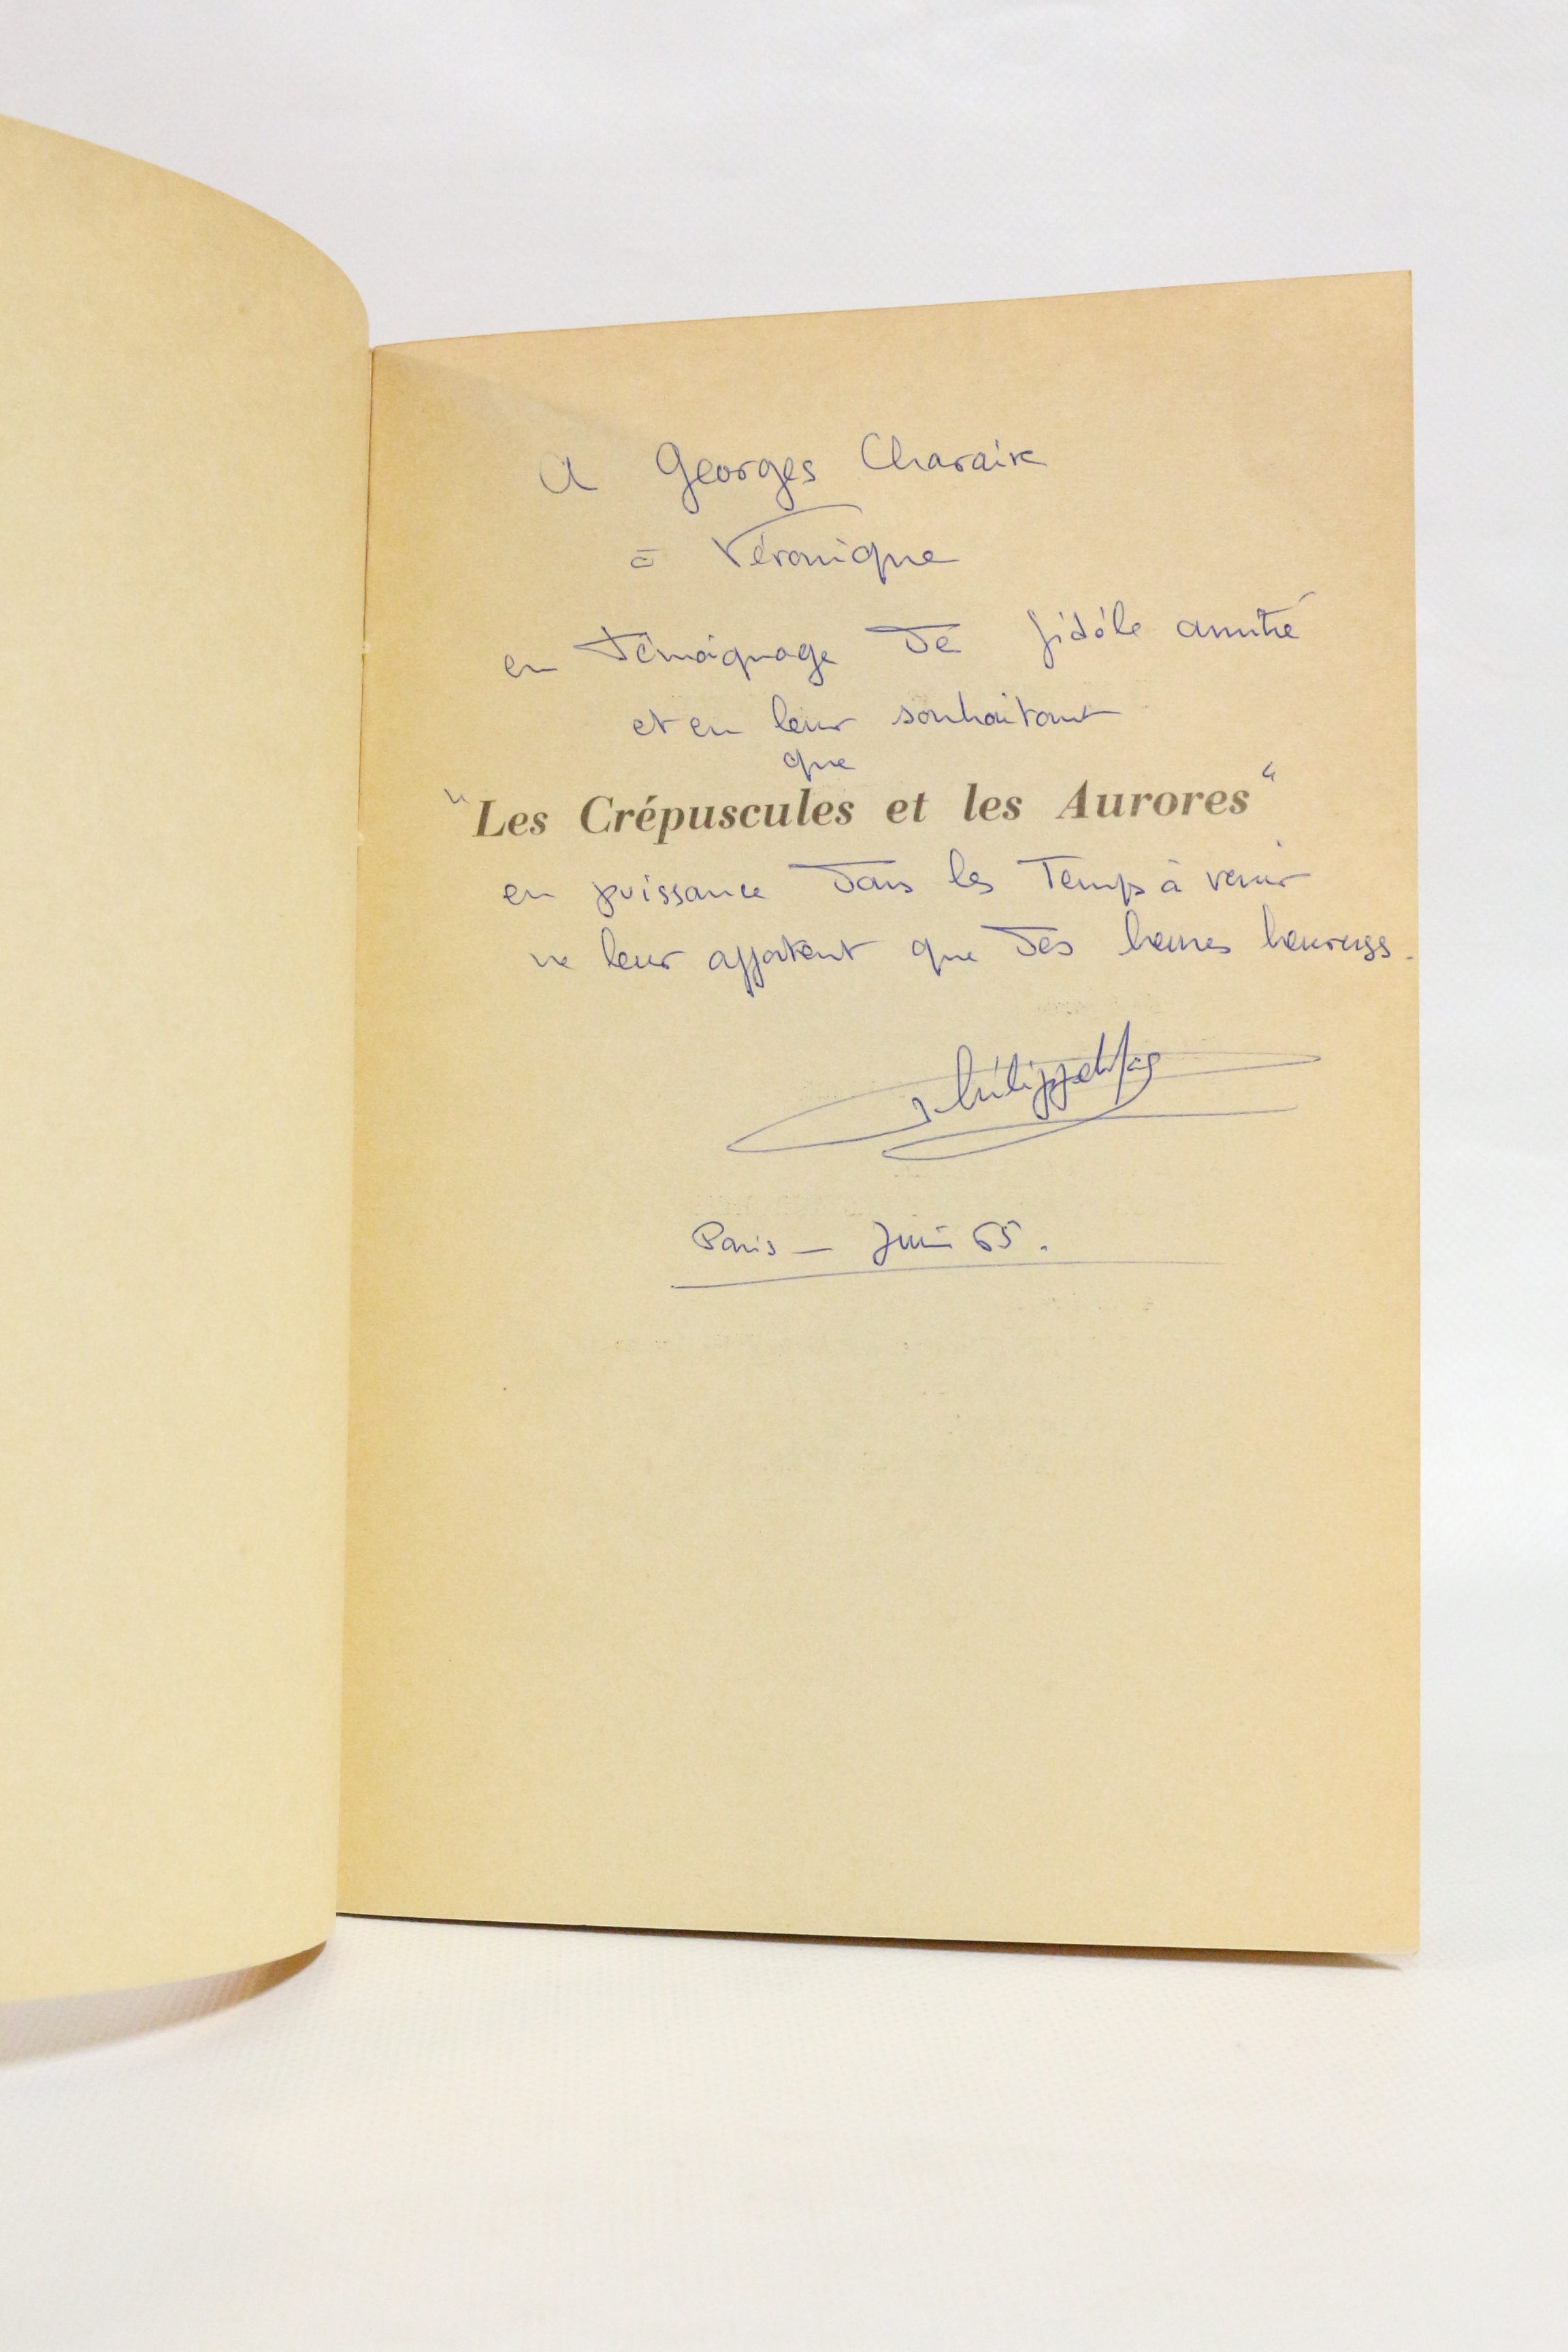 A Georges Charaire
à Véronique
en témoignage de fidèle amitié
et en leur souhaitant
que
"Les Crépuscules et les Aurores"
en puissance dans les Temps à venir
ne leur apportent que des heures heureuses.
Paris – Juin 65.